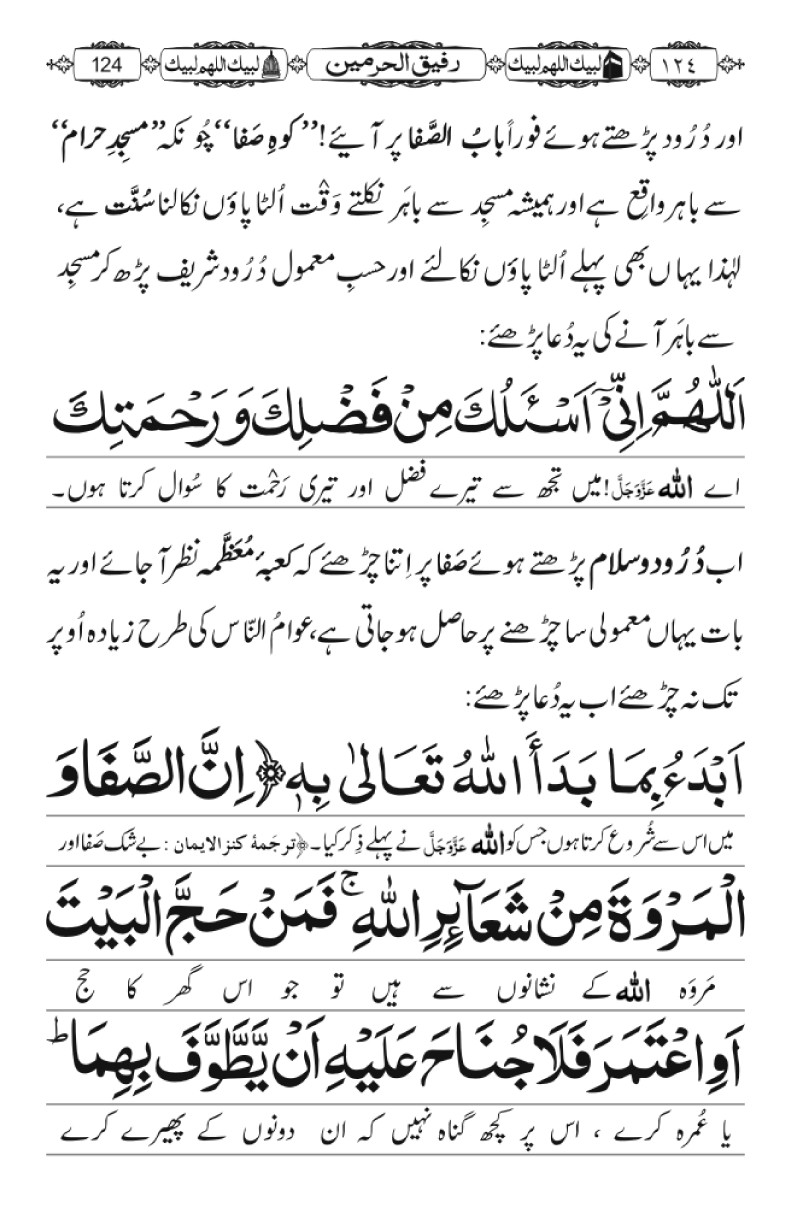 ١٢٤ لبيك اللهم لبيك رفیق الحرمین لبيك اللهم لبيك 124
اور دُرُود پڑھتے ہوئے فوراً بابُ الصَّفا پر آیئے! ’’کوہِ صَفا‘‘ چُونکہ ’’مسجِدِ حرام‘‘
سے باہر واقِع ہے اور ہمیشہ مسجِد سے باہَر نکلتے وَقْت اُلٹا پاؤں نکالنا سُنَّت ہے،
لہٰذا یہاں بھی پہلے اُلٹا پاؤں نکالئے اور حسبِ معمول دُرُود شریف پڑھ کر مسجِد
سے باہَر آنے کی یہ دُعا پڑھئے:
اَللّٰهُمَّ اِنِّیْۤ اَسْـَٔلُكَ مِنْ فَضْلِكَ وَرَحْمَتِكَ
اے اللہ عَزَّوَجَلَّ! میں تجھ سے تیرے فضل اور تیری رَحْمت کا سُوال کرتا ہوں۔
اب دُرُود و سلام پڑھتے ہوئے صَفا پر اِتنا چڑھئے کہ کعبۂ مُعَظَّمہ نظر آ جائے اور یہ
بات یہاں معمولی سا چڑھنے پر حاصل ہوجاتی ہے، عوامُ النّاس کی طرح زیادہ اُوپر
تک نہ چڑھئے اب یہ دُعا پڑھئے:
اَبْدَءُ بِمَا بَدَأَ اللهُ تَعَالٰى بِهٖ ﴿ اِنَّ الصَّفَا وَ
میں اس سے شُروع کرتا ہوں جس کو اللہ عَزَّوَجَلَّ نے پہلے ذِکر کیا۔ ﴿ترجَمۂ کنز الایمان : بے شک صَفا اور
الْمَرْوَةَ مِنْ شَعَآىِٕرِ اللهِ ۚ فَمَنْ حَجَّ الْبَیْتَ
مَروَہ اللہ کے نشانوں سے ہیں تو جو اس گھر کا حج
اَوِ اعْتَمَرَ فَلَا جُنَاحَ عَلَیْهِ اَنْ یَّطَّوَّفَ بِهِمَا ؕ
یا عُمرہ کرے ، اس پر کچھ گناہ نہیں کہ ان دونوں کے پھیرے کرے